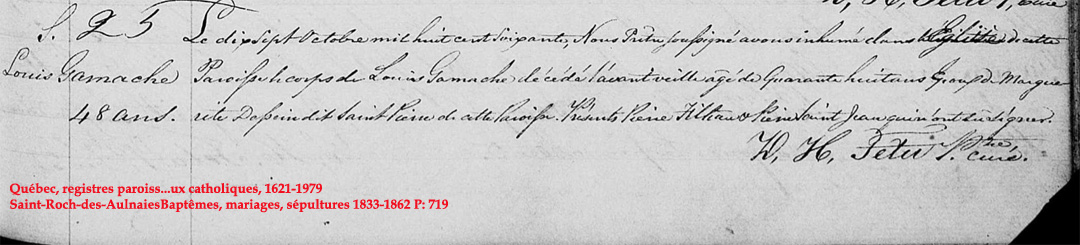 D, H, Tetu P, curé
S. 25 Le dix sept Octobre mil huit cent Soixante, Nous Prêtre soussigné avons inhumé dans l'Eglise de cette
Louis Gamache Paroisse le corps de Louis Gamache décédé l'avant veille agé de Quarante huit ans Epoux de Margue
48 ans. rite Pelerin dit Saint Pierre de cette Paroisse. Présents Pierre & Pierre Saint Jean qui n'ont su signer.
D, H, Tetu Ptre, curé.
Québec, registres paroiss...ux catholiques, 1621-1979
Saint-Roch-des-AulnaiesBaptêmes, mariages, sépultures 1833-1862 P: 719